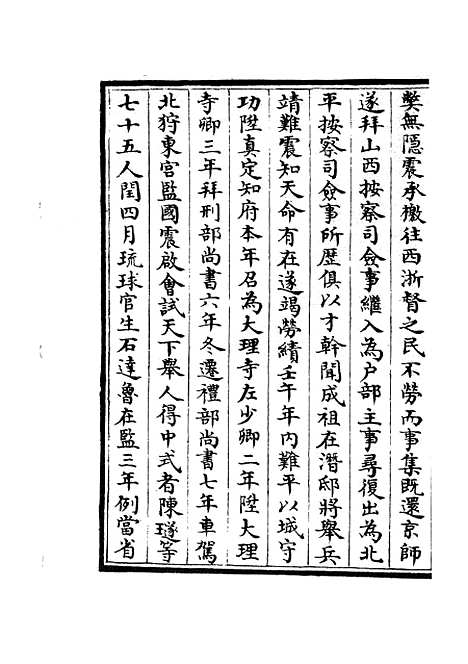 弊無隠震承檄往西浙督之民不勞而事集既還京師
遂拜山西按察司僉事繼入為户部主事尋復出為北
平按察司僉事所歴俱以才幹聞成祖在潛邸將舉兵
靖難震知天命有在遂竭勞績壬午年内難平以城守
功陞真定知府本年召為大理寺左少卿二年陞大理
寺卿三年拜刑部尚書六年冬遷禮部尚書七年車駕
北狩東宫監國震啟會試天下舉人得中式者陳璲等
七十五人閏四月琉球官生石達魯在監三年例當省